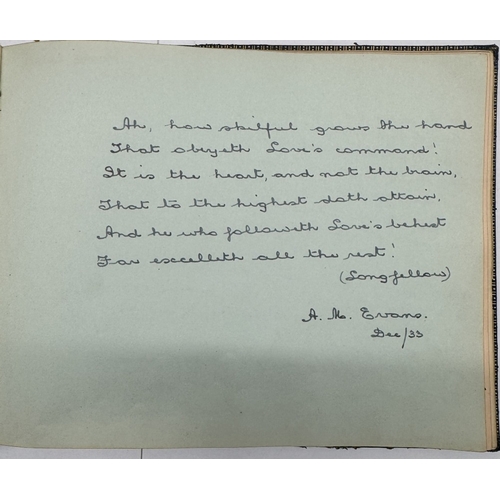 Ah, how skilful grows the hand
That obeyeth Love's command!
It is the heart, and not the brain,
That to the highest doth attain,
And he who followeth Love's behest
Far excelleth all the rest!
(Longfellow)
A. M. Evans.
Dec/33